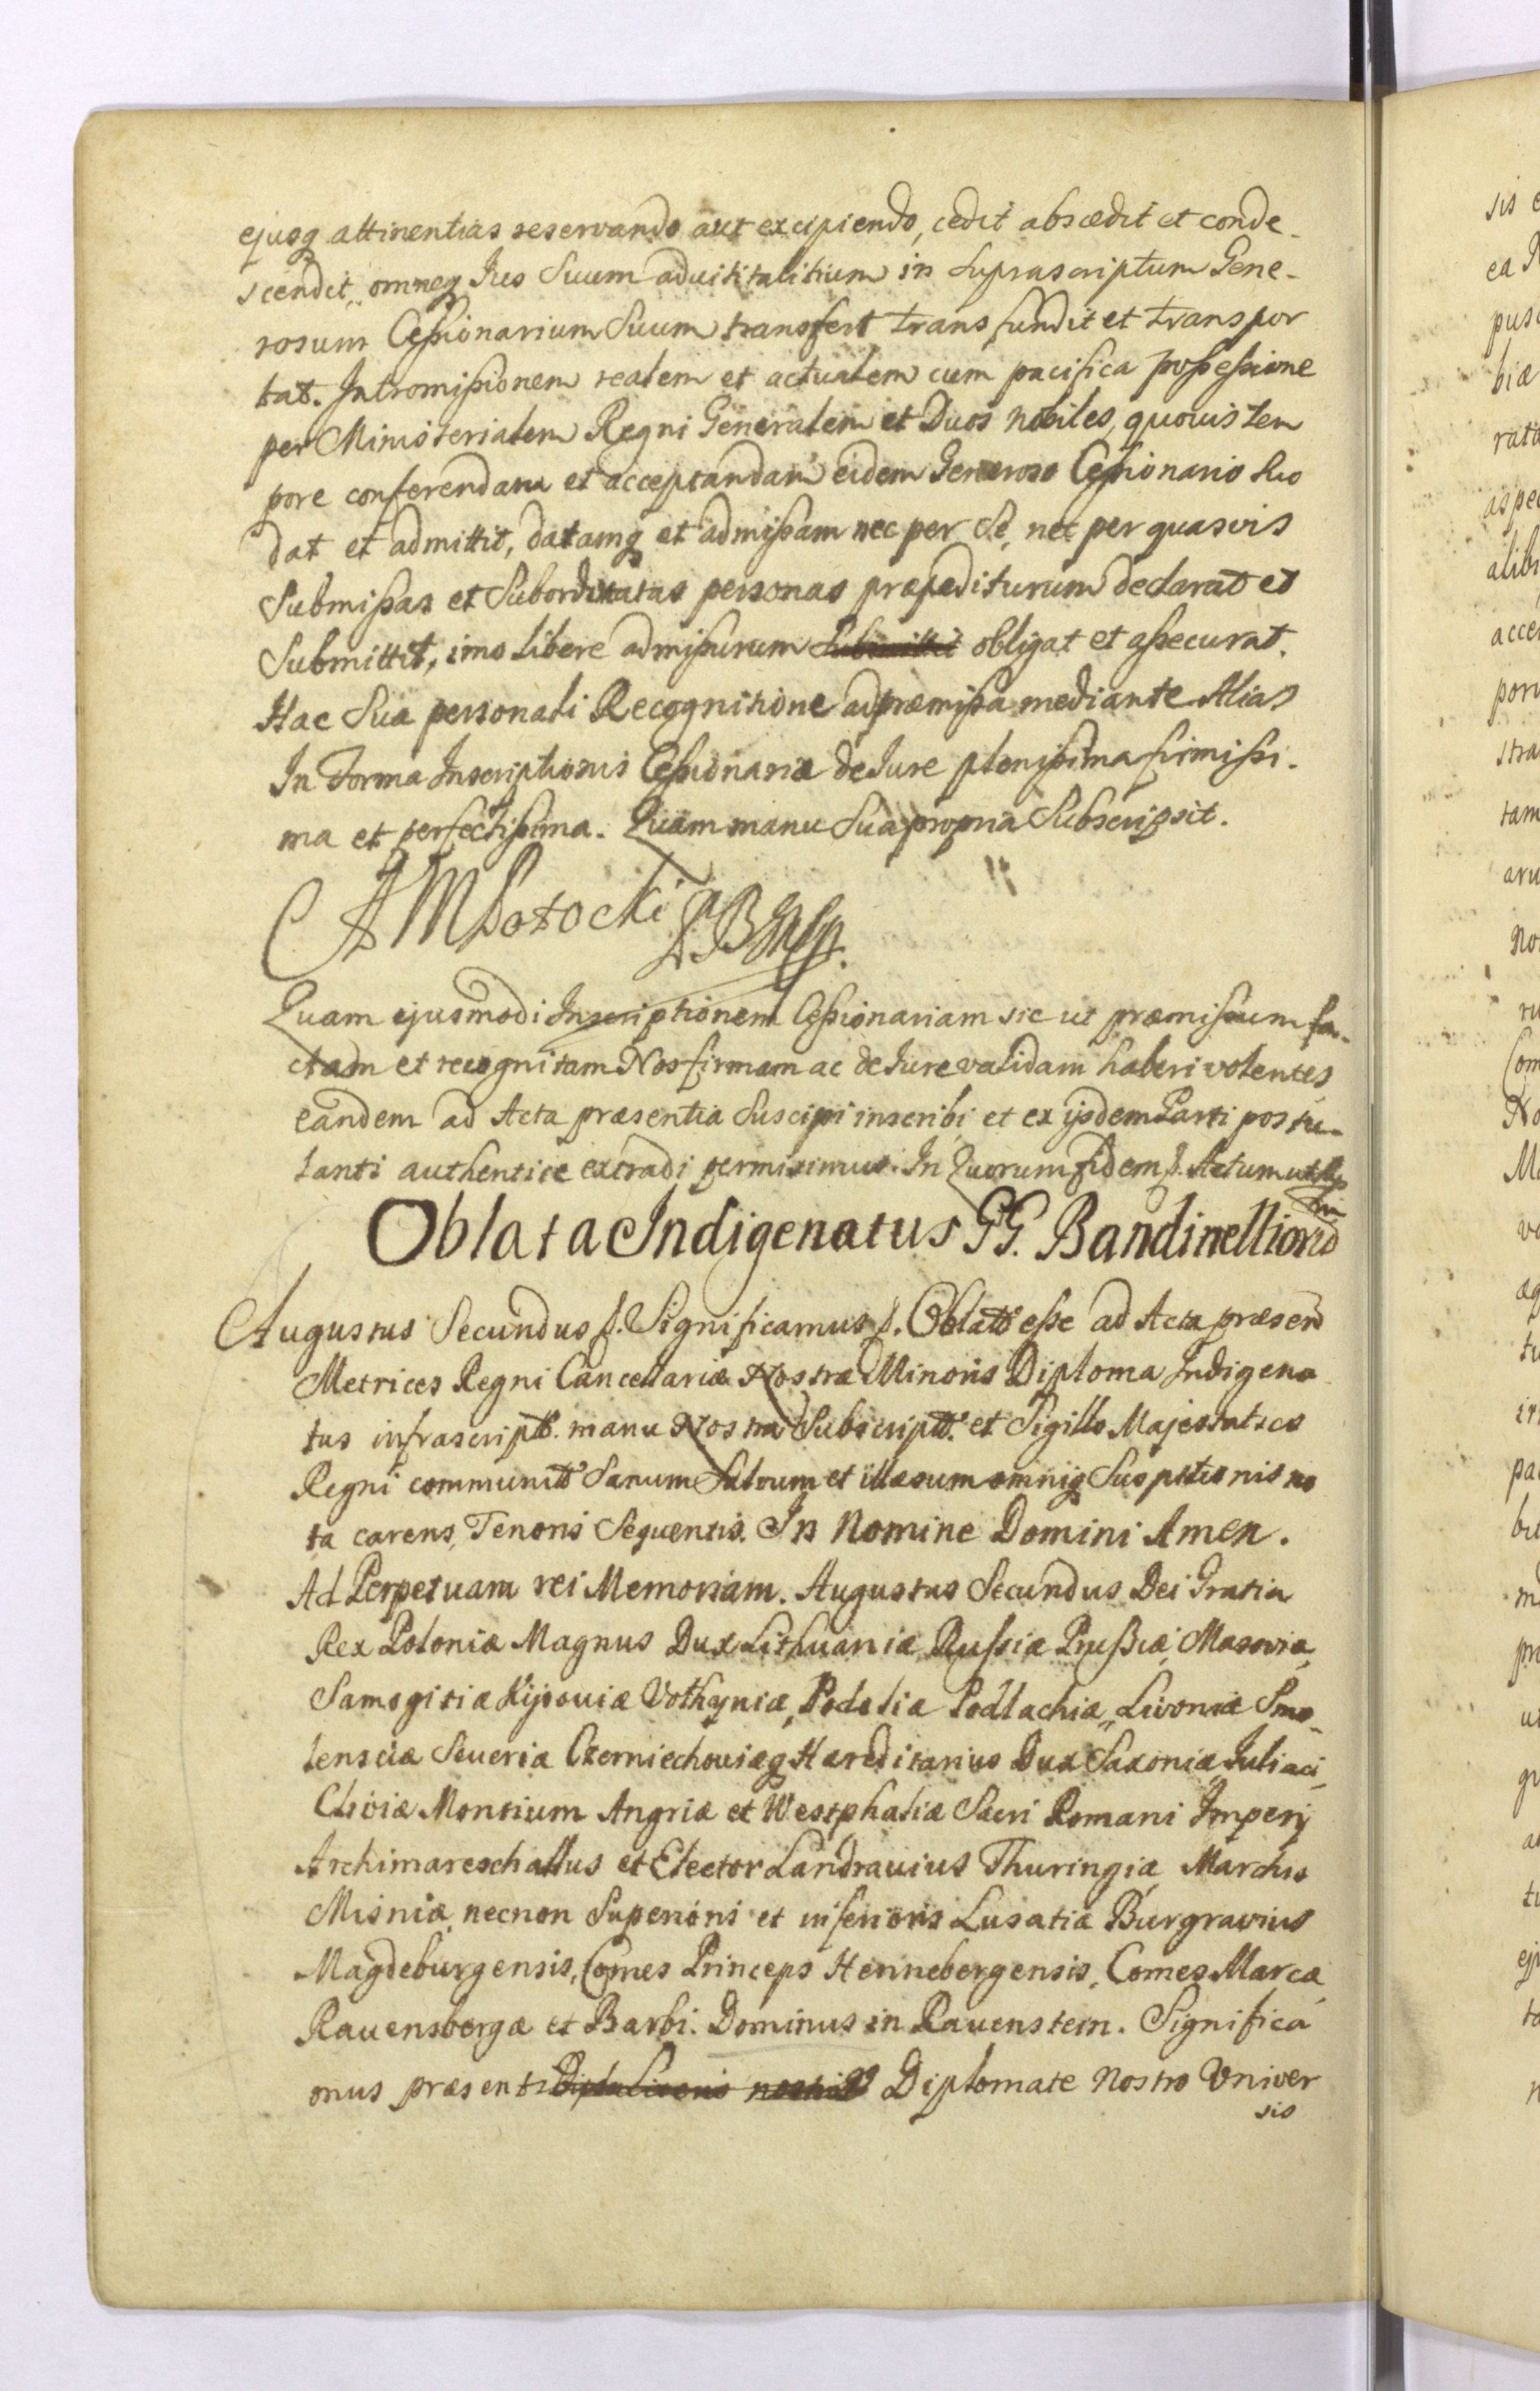 ejusq attinentias reservando aut excipiendo, cedit abscedit et conde-
scendit, omneq Ius Suum advitalitium in Suprascriptum Gene-
rosum Cessionarium Suum transfert transfundit et transpor
tat. Intromissionem realem et actualem cum pacifica possessione
per Ministerialem Regni Generalem et Duos nobiles, quovis tem
pore conferendam et acceptandam eidem Generoso Cessionario Suo
dat et admittit, datamq et admissam nec per Se, nec per quasvis
Submissas et Subordinatas personas præpediturum declarat et
Submittit, imo libere admissurum Submittit obligat et assecurat.
Hac Sua personali Recognitione ad præmissa mediante Alias
In Forma Inscriptionis Cessionariæ de Iure plenissima firmissi-
ma et perfectissima. Quam manu Sua propria Subscripsit.
Potocki
Quam ejusmodi Inscriptionem Cessionariam sic ut præmissum fa-
ctam et recognitam Nos firmam ac de Iure validam haberi volentes
eandem ad Acta præsentia Suscipi inscribi et ex ijsdem Parti postu-
lanti authentice extradi permisimus. In Quorum fidem p. Actum ut Sup
Oblata Indigenatus GG. Bandinelliorũ
Augustus Secundus p. Significamus p. Oblatũ esse ad Acta præsen
Metrices Regni Cancellariæ Nostræ Minoris Diploma Indigena
tus infrascriptũ. manu Nostra Subscriptũ. et Sigillo Majestatico
Regni communitũ Sanum Salvum et illæsum omniq Suspitionis no
ta carens, Tenoris Sequentis. In Nomine Domini Amen.
Ad Perpetuam rei Memoriam. Augustus Secundus Dei Gratia
Rex Poloniæ Magnus Dux Lithuaniæ, Russiæ Prussiæ, Masoviæ,
Samogitiæ Kijoviæ Volhyniæ, Podoliæ Podlachiæ, Livoniæ Smo-
lensciæ Severiæ Czerniechoviæq Hæreditarius Dux Saxoniæ, Iuliaci,
Cliviæ Montium Angriæ et Westphaliæ Sacri Romani Imperij
Archimareschallus et Elector Landravius Thuringiæ Marchio
Misniæ, necnon Superioris et inferioris Lusatiæ Burgravius
Magdeburgensis, Comes Princeps Hennebergensis, Comes Marcæ,
Ravensbergæ et Barbi. Dominus in Ravenstein. Significa
mus præsenti nostris Diplomate Nostro Univer
sis